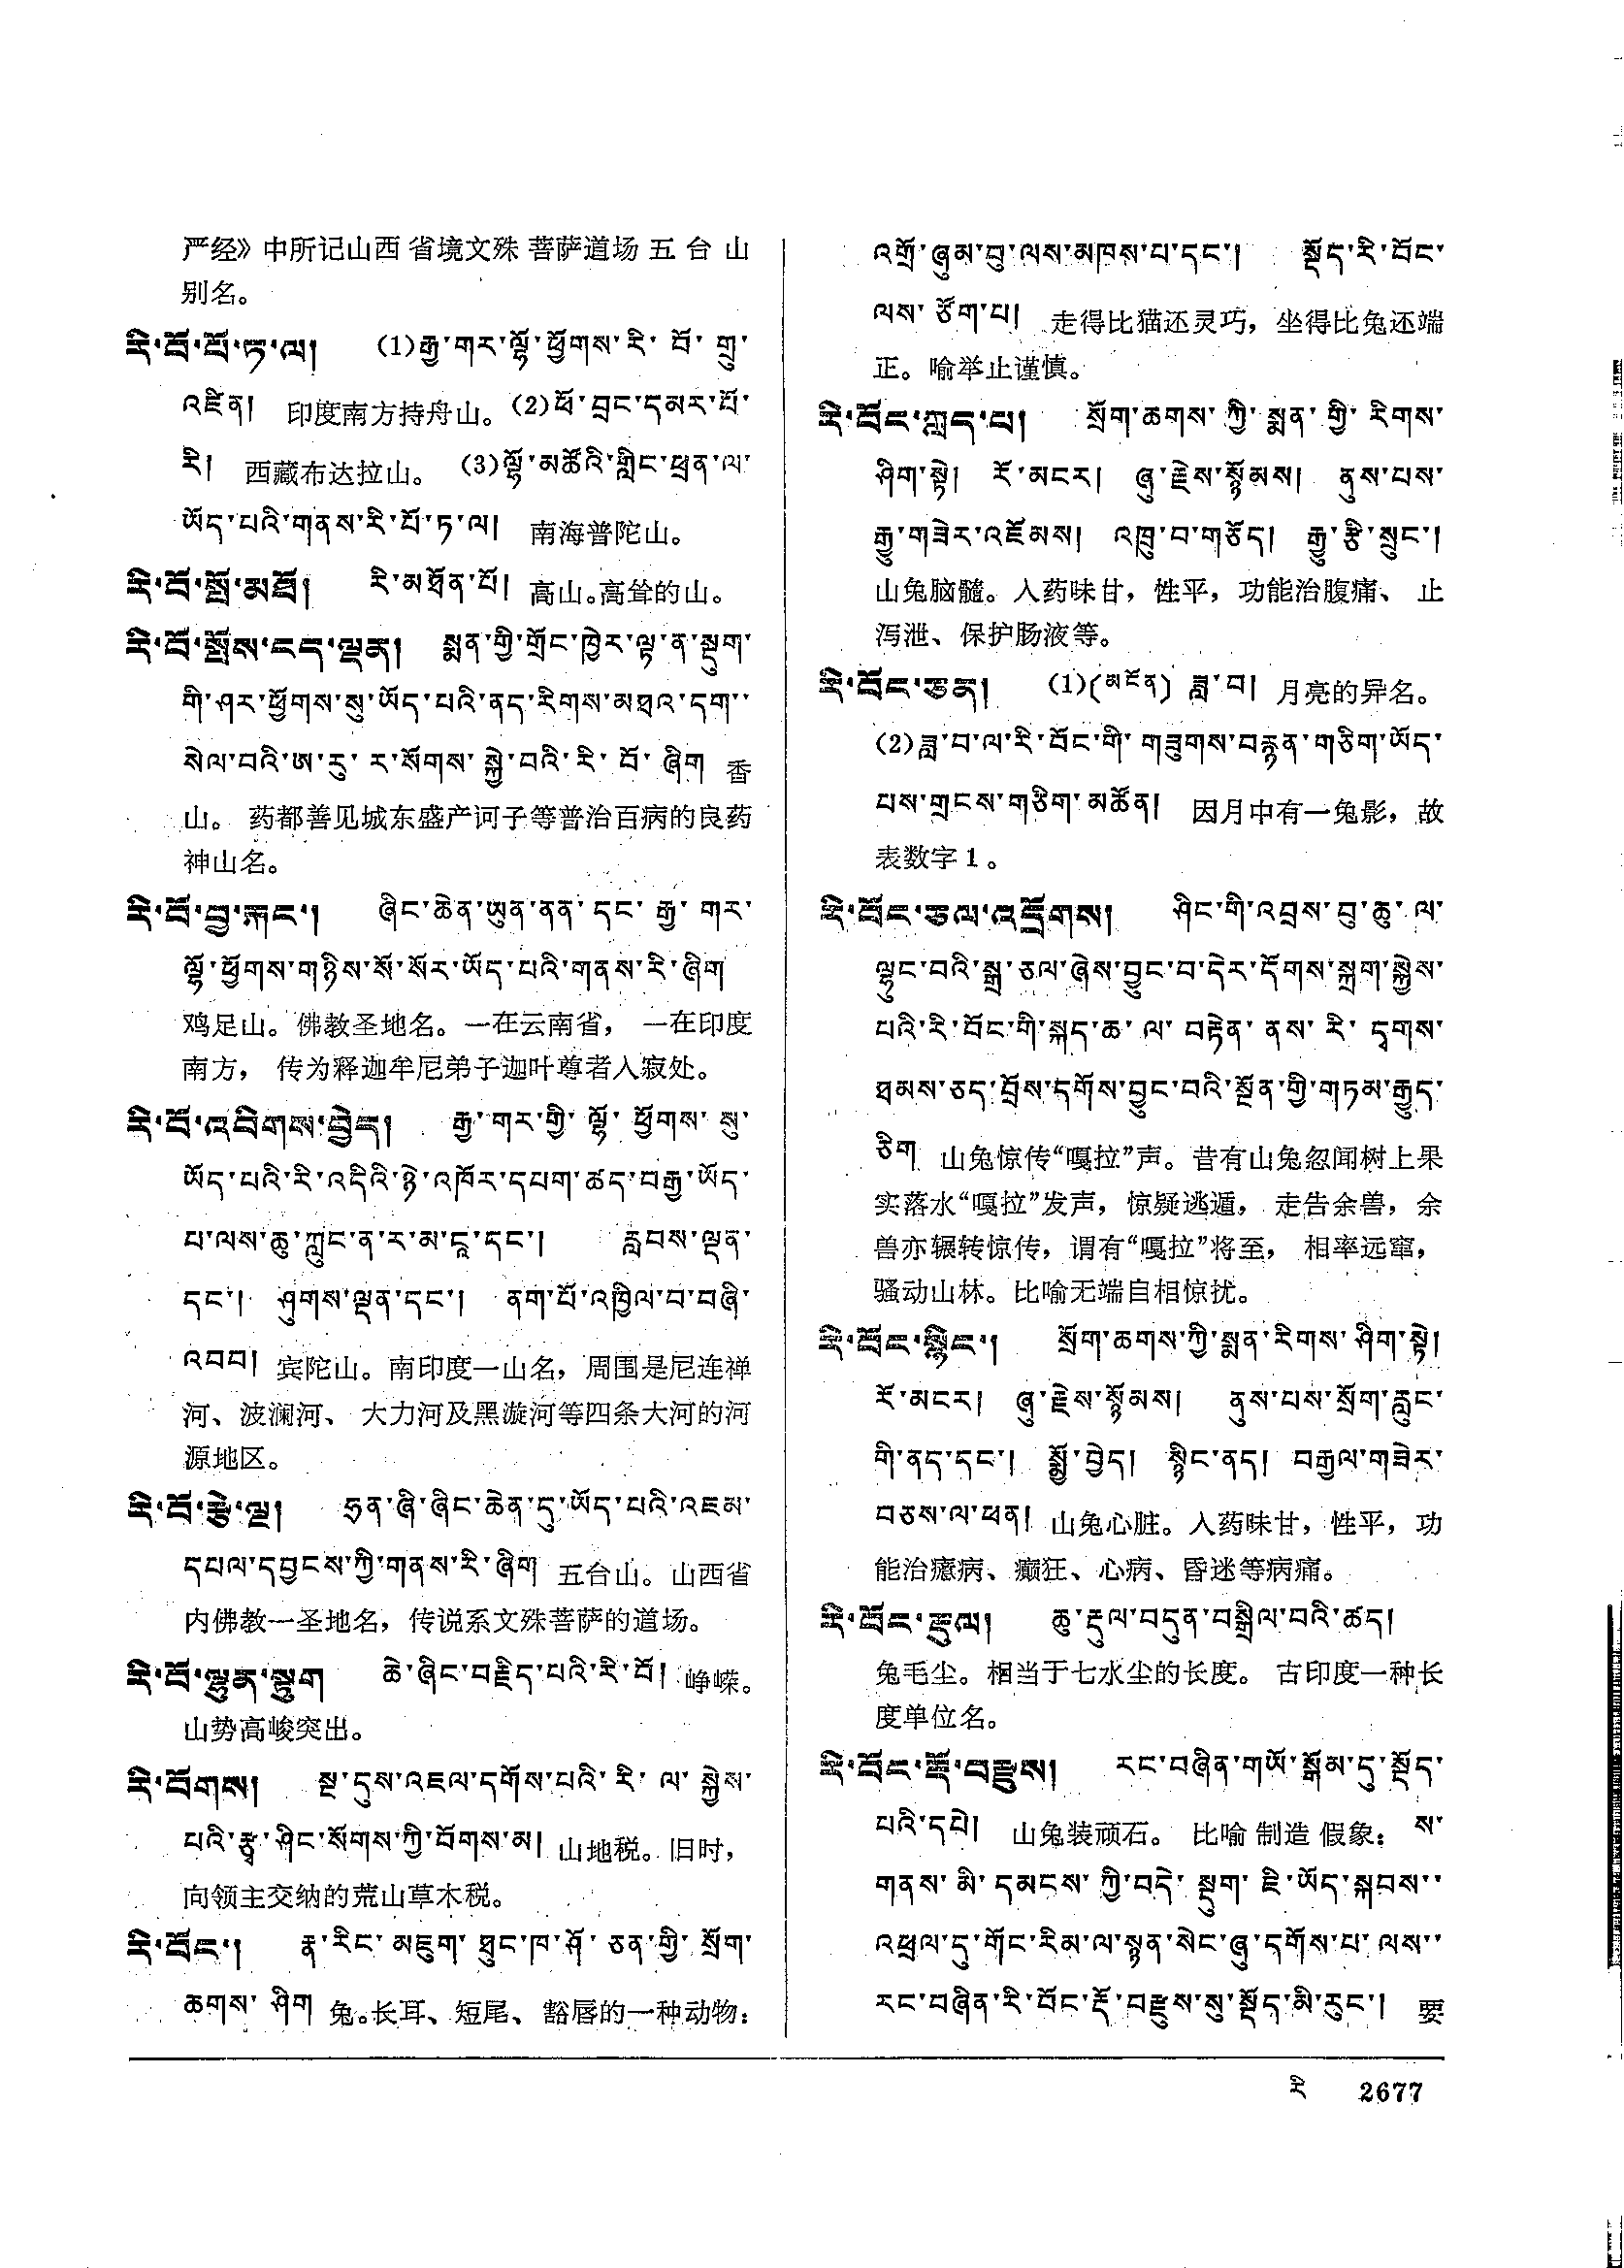 严经》中所记山西省境文殊菩萨道场五台山
别名。
རི་བོ་པོ་ཏ་ལ། (1)རྒྱ་གར་ལྷོ་ཕྱོགས་རི་བོ་གྲུ་
འཛིན། 印度南方持舟山。(2)ཕོ་བྲང་དམར་པོ་
རི། 西藏布达拉山。 (3)ལྷོ་མཚོའི་གླིང་ཕྲན་ལ་
ཡོད་པའི་གནས་རི་པོ་ཏ་ལ། 南海普陀山。
རི་བོ་སྤྲོ་མཐོ། རི་མཐོན་པོ། 高山。高耸的山。
རི་བོ་སྤོས་ངད་ལྡན། སྨན་གྱི་གྲོང་ཁྱེར་ལྟ་ན་སྡུག་
གི་ཤར་ཕྱོགས་སུ་ཡོད་པའི་ནད་རིགས་མཐའ་དག་
སེལ་བའི་ཨ་རུ་ར་སོགས་སྐྱེ་བའི་རི་བོ་ཞིག 香
山。 药都善见城东盛产诃子等普治百病的良药
神山名。
རི་བོ་བྱ་རྐང་། ཞིང་ཆེན་ཡུན་ནན་དང་རྒྱ་གར་
ལྷོ་ཕྱོགས་གཉིས་སོ་སོར་ཡོད་པའི་གནས་རི་ཞིག
鸡足山。佛教圣地名。一在云南省， 一在印度
南方， 传为释迦牟尼弟子迦叶尊者入寂处。
རི་བོ་འབིགས་བྱེད། རྒྱ་གར་གྱི་ལྷོ་ཕྱོགས་སུ་
ཡོད་པའི་རི་འདིའི་ཉེ་འཁོར་དཔག་ཚད་བརྒྱ་ཡོད་
པ་ལས་ཆུ་ཀླུང་ན་ར་མ་དཱ་དང་། རླབས་ལྡན་
དང་། ཤུགས་ལྡན་དང་། ནག་པོ་འཁྱིལ་བ་བཞི་
འབབ། 宾陀山。南印度一山名，周围是尼连禅
河、波澜河、 大力河及黑漩河等四条大河的河
源地区。
རི་བོ་རྩེ་ལྔ། ཧྲན་ཞི་ཞིང་ཆེན་དུ་ཡོད་པའི་འཇམ་
དཔལ་དབྱངས་ཀྱི་གནས་རི་ཞིག 五台山。山西省
内佛教一圣地名，传说系文殊菩萨的道场。
རི་བོ་ལྷུན་སྟུག ཆེ་ཞིང་བརྗིད་པའི་རི་བོ། 峥嵘。
山势高峻突出。
རི་བོགས། སྔ་དུས་འཇལ་དགོས་པའི་རི་ལ་སྐྱེས་
པའི་རྩྭ་ཤིང་སོགས་ཀྱི་བོགས་མ། 山地税。旧时，
向领主交纳的荒山草木税。
རི་བོང་། རྣ་རིང་མཇུག་ཐུང་ཁ་ཤོ་ཅན་གྱི་སྲོག་
ཆགས་ཤིག 兔。长耳、短尾、豁唇的一种动物：
འགྲོ་ཞུམ་བུ་ལས་མཁས་པ་དང་། སྡོད་རི་བོང་
ལས་ཙོག་པ། 走得比猫还灵巧，坐得比兔还端
正。喻举止谨慎。
རི་བོང་ཀླད་པ། སྲོག་ཆགས་ཀྱི་སྨན་གྱི་རིགས་
ཤིག་སྟེ། རོ་མངར། ཞུ་རྗེས་སྙོམས། ནུས་པས་
རྒྱུ་གཟེར་འཇོམས། འཁྲུ་བ་གཅོད། རྒྱུ་རྩི་སྲུང་།
山兔脑髓。入药味甘，性平，功能治腹痛、 止
泻泄、保护肠液等。
རི་བོང་ཅན། (1)(མངོན) ཟླ་བ། 月亮的异名。
(2)ཟླ་བ་ལ་རི་བོང་གི་གཟུགས་བརྙན་གཅིག་ཡོད་
པས་གྲངས་གཅིག་མཚོན། 因月中有一兔影，故
表数字1。
རི་བོང་ཅལ་འདྲོགས། ཤིང་གི་འབྲས་བུ་ཆུ་ལ་
ལྷུང་བའི་སྒྲ་ཅལ་ཞེས་བྱུང་བ་དེར་དོགས་སྐྲག་སྐྱེས་
པའི་རི་བོང་གི་སྐད་ཆ་ལ་བརྟེན་ནས་རི་དྭགས་
ཐམས་ཅད་བྲོས་དགོས་བྱུང་བའི་སྔོན་གྱི་གཏམ་རྒྱུད་
ཅིག 山兔惊传“嘎拉”声。昔有山兔忽闻树上果
实落水“嘎拉”发声，惊疑逃遁， 走告余兽，余
兽亦辗转惊传，谓有“嘎拉”将至， 相率远窜，
骚动山林。比喻无端自相惊扰。
རི་བོང་སྙིང་། སྲོག་ཆགས་ཀྱི་སྨན་རིགས་ཤིག་སྟེ།
རོ་མངར། ཞུ་རྗེས་སྙོམས། ནུས་པས་སྲོག་རླུང་
གི་ནད་དང་། སྨྱོ་བྱེད། སྙིང་ནད། བརྒྱལ་གཟེར་
བཅས་ལ་ཕན། 山兔心脏。入药味甘，性平，功
能治癔病、癫狂、心病、昏迷等病痛。
རི་བོང་རྡུལ། ཆུ་རྡུལ་བདུན་བསྒྲིལ་བའི་ཚད།
兔毛尘。相当于七水尘的长度。 古印度一种长
度单位名。
རི་བོང་རྡོ་བརྫུས། རང་བཞིན་གཡོ་སྒོམ་དུ་སྡོད་
པའི་དཔེ། 山兔装顽石。 比喻制造假象： ས་
གནས་མི་དམངས་ཀྱི་བདེ་སྡུག་ཇི་ཡོད་སྐབས་
འཕྲལ་དུ་གོང་རིམ་ལ་སྙན་སེང་ཞུ་དགོས་པ་ལས་
རང་བཞིན་རི་བོང་རྡོ་བརྫུས་སུ་སྡོད་མི་རུང་། 要
རི 2677